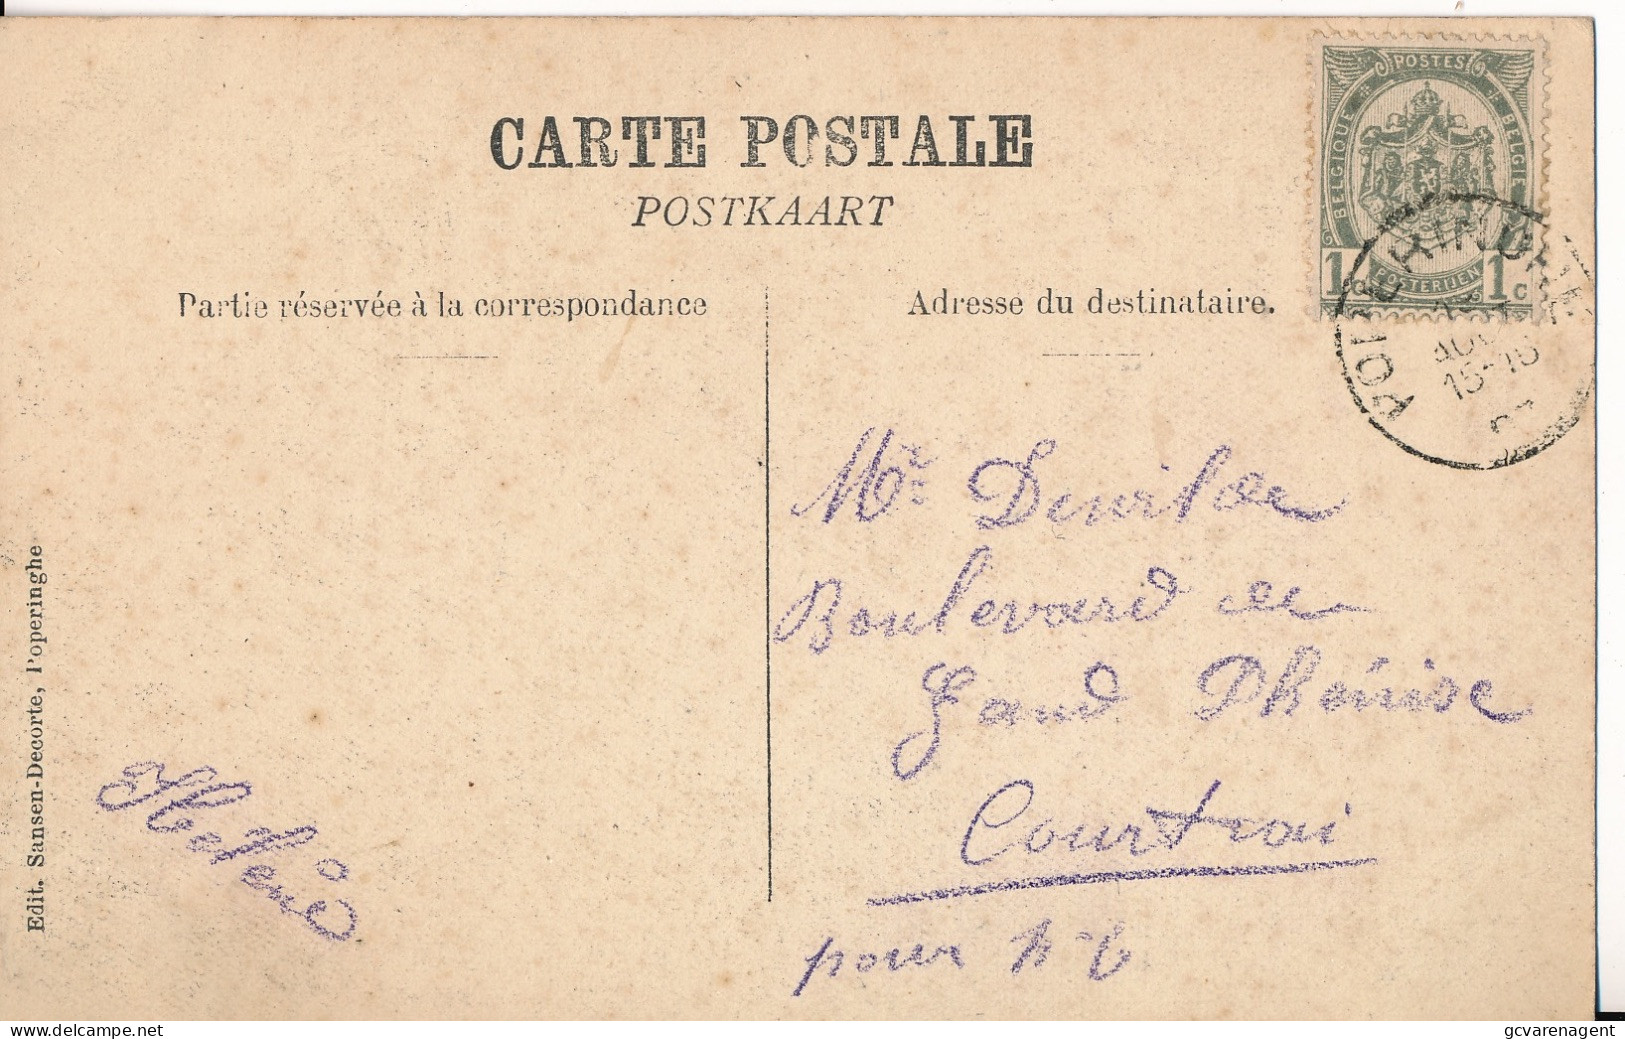 CARTE POSTALE
POSTKAART
Partie réservée à la correspondance
Adresse du destinataire.
POSTES
BELGIQUE
BELGIË
POSTERIJEN
1 1c
POP HINGHE
15-16
07
Mr
Boulevard
Gand
Courtrai
pour
Edit. Sansen-Decorte, Poperinghe
delcampe.net
gcvarenagent